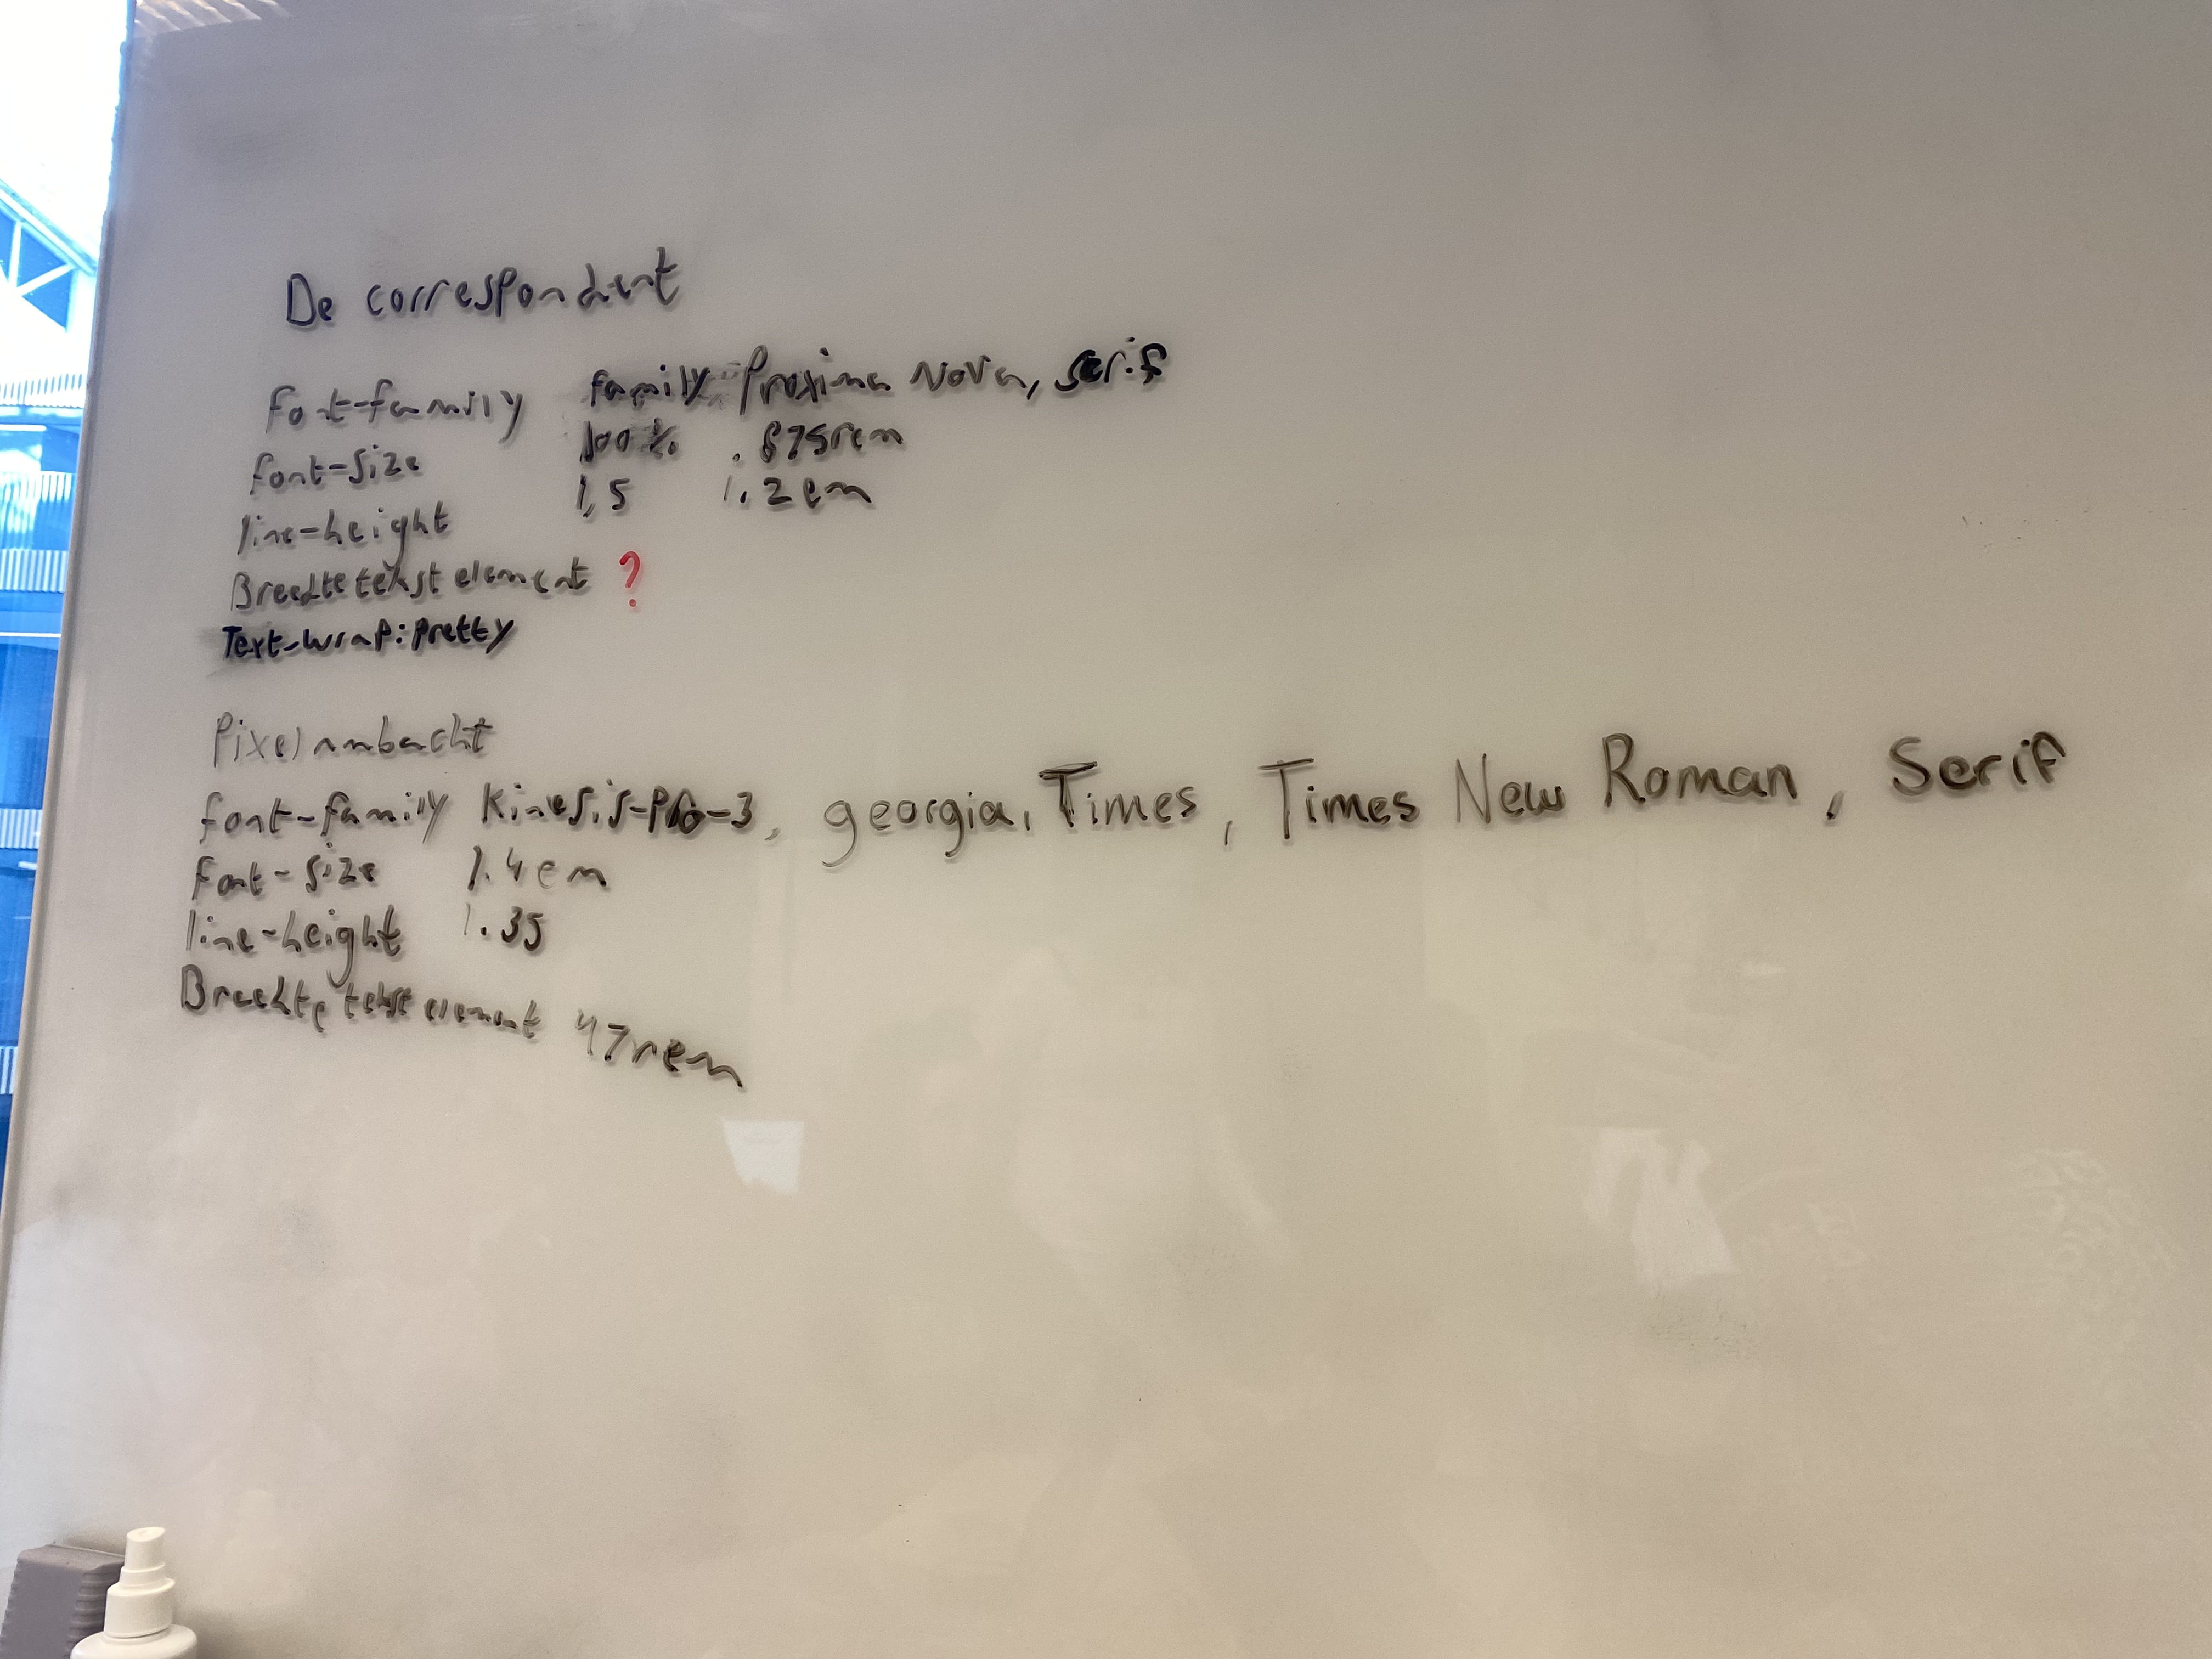 De correspondent
font-family family Proxima Nova, serif
font-size 100% .875rem
line-height 1,5 1.2em
Breedte tekst element ?
Text-wrap: pretty
Pixelambacht
font-family Kinesis-Pro-3, georgia, Times, Times New Roman, Serif
font-size 1.4em
line-height 1.35
Breedte tekst element 47rem